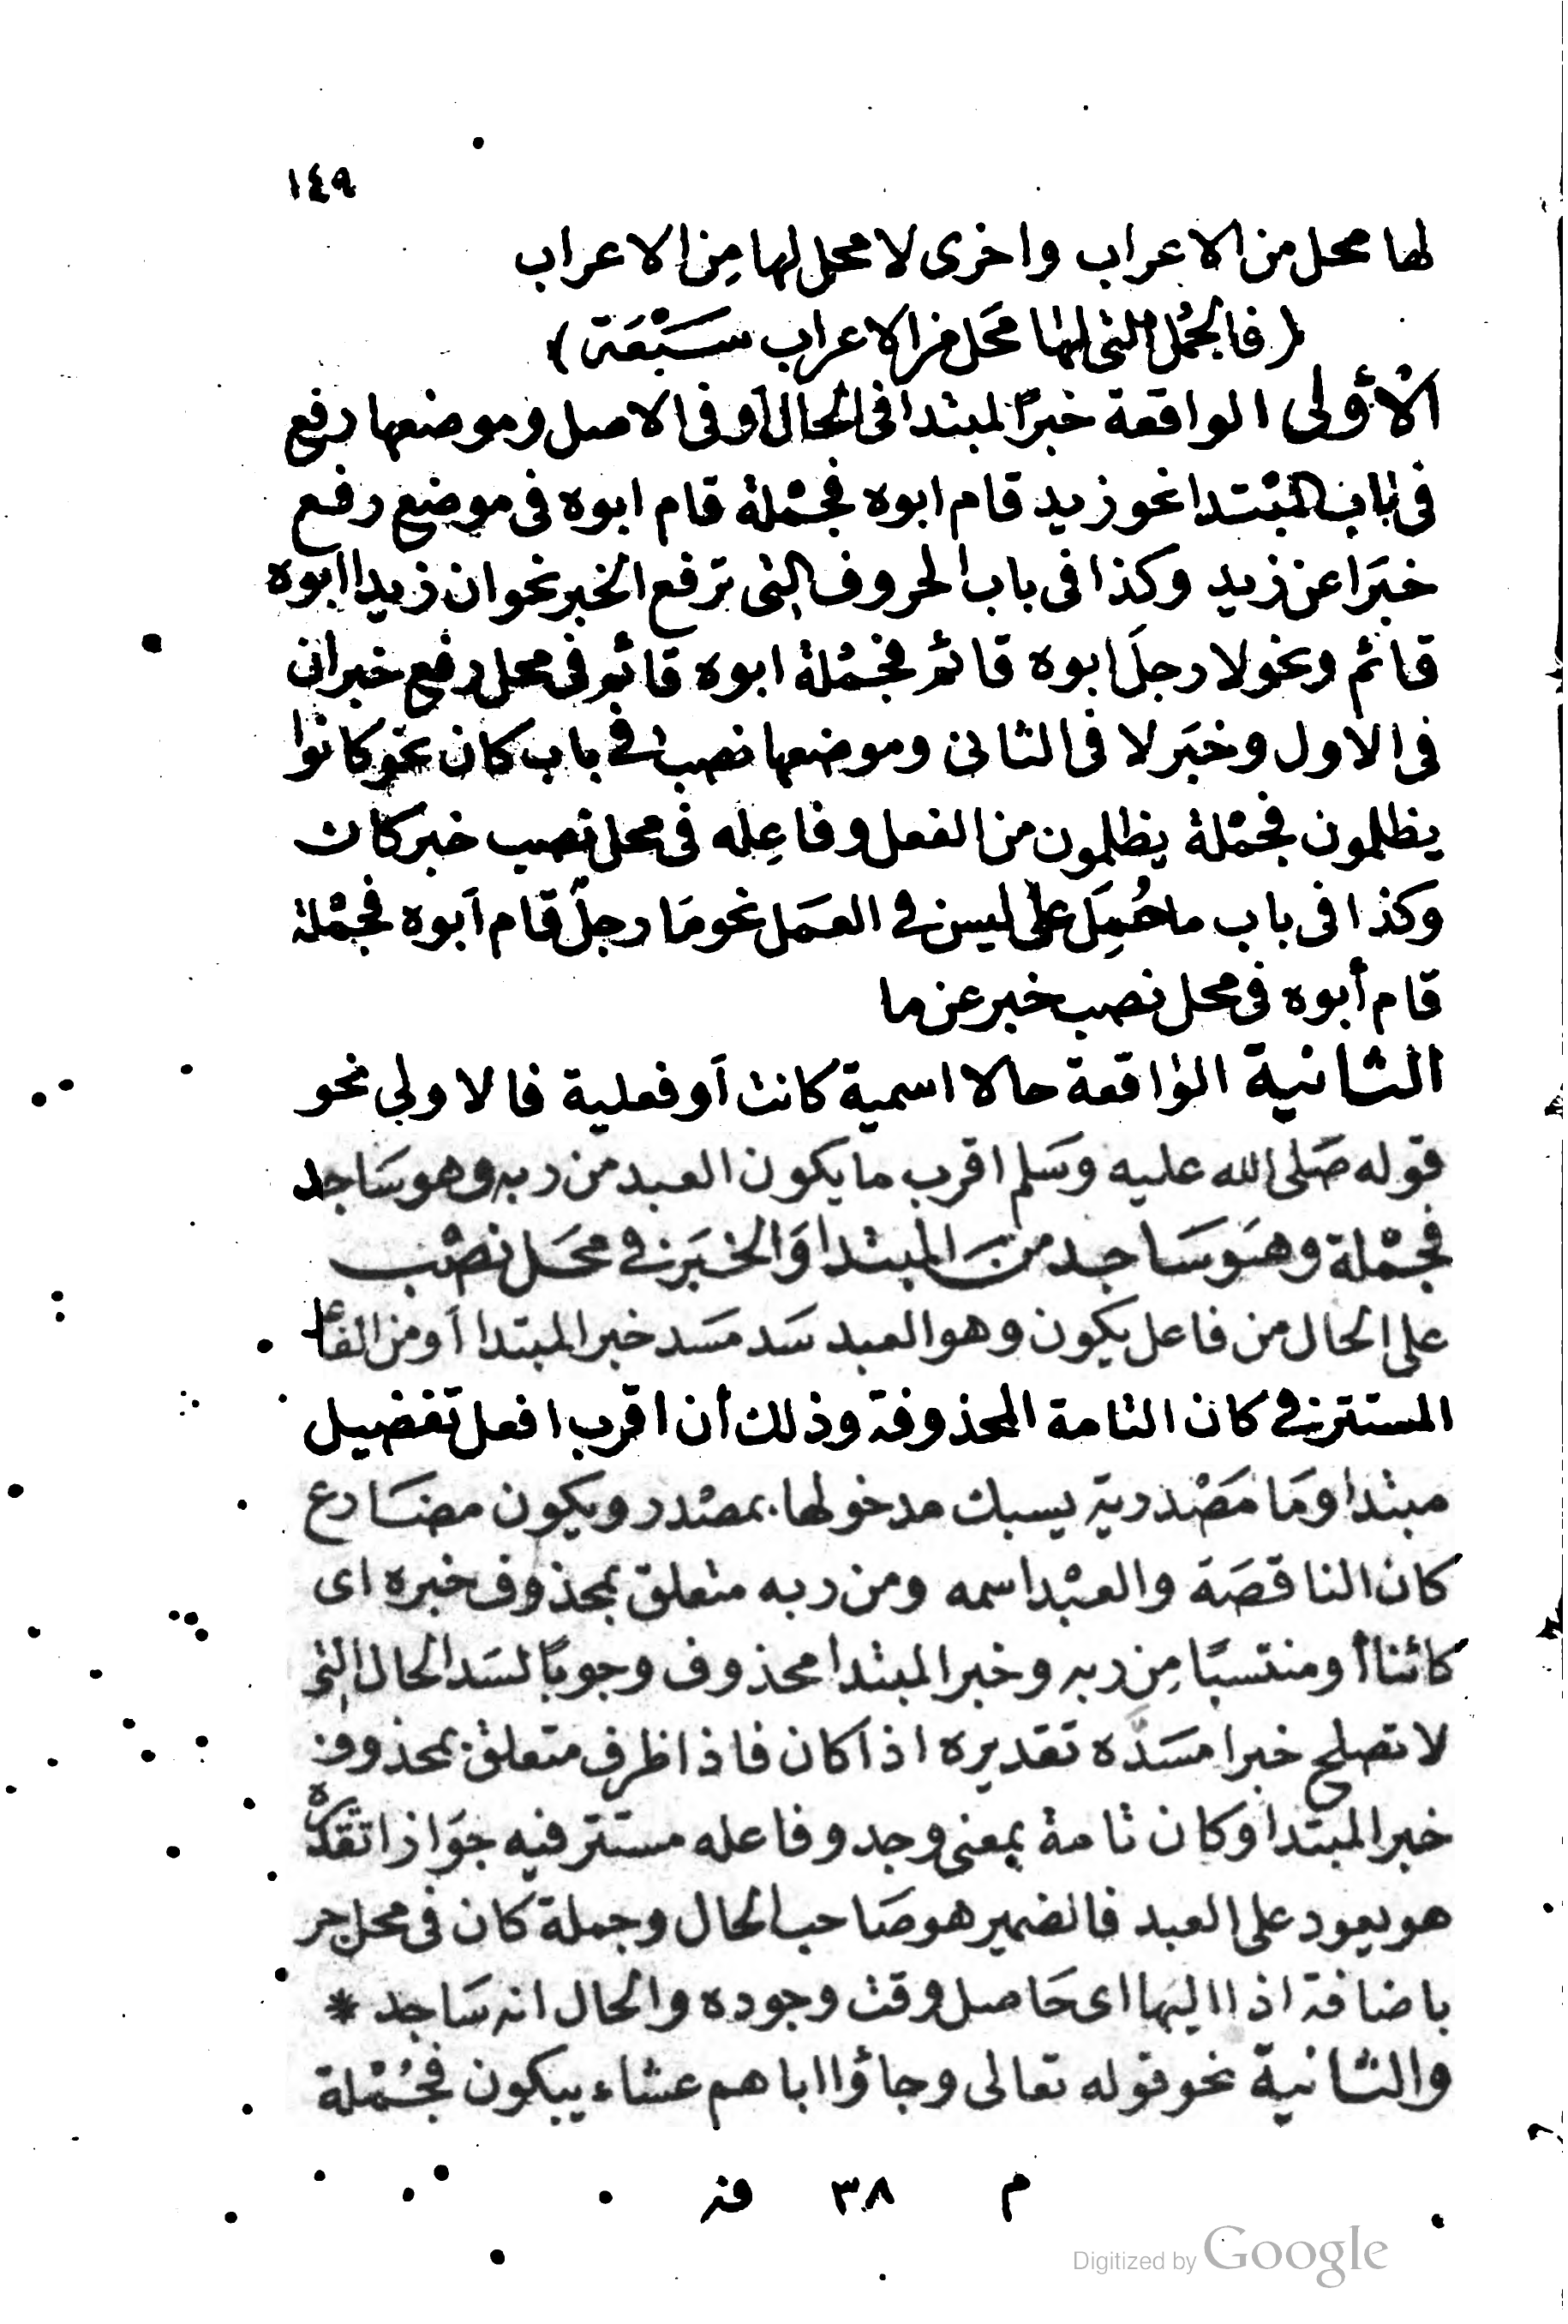 ١٤٩
لها محل من الاعراب واخرى لا محل لها مِن الاعراب
(فالجُمل التى لها محَل من الاعراب سَبْعَة)
الأولى الواقعة خبرًا لمبتدا فى الحال أو فى الاصل وموضعها رفع
فى باب المبْتدا نحو زيد قام ابوه فجمْلة قام ابوه فى موضع رفع
خبَرا عن زيد وكذا فى باب الحروف التى ترفع الخبر نحو ان زيدا ابوه
قائم ونحو لا رجلَ ابوه قائم فجمْلة ابوه قائم فى محل رفع خبر ان
فى الاول وخبَر لا فى الثانى وموضعها نصب فى باب كان نحو كانوا
يظلمون فجمْلة يظلمون من الفعل وفاعِله فى محل نصب خبر كان
وكذا فى باب ما حُمِلَ على ليس فى العمَل نحو مَا رجلٌ قام أبوه فجمْلة
قام أبوه فى محل نصب خبر عن ما
الثانية الواقعة حالا اسمية كانت أو فعلية فالاولى نحو
قوله صَلى الله عليه وسَلم اقرب ما يكون العبد من ربه وهو سَاجد
فجمْلة وهَو سَاجد منَ المبتدا وَالخبَر فى محَل نصْب
على الحال من فاعل يكون وهو العبد سَد مسَد خبر المبتدا أو من الفا
المستتر فى كان التامة المحذوفة وذلك أن اقرب افعل تفضيل
مبتدا ومَا مَصْدرية يسبك مدخولها بمصْدر ويكون مضَارع
كان الناقصَة والعبْد اسمه ومن ربه متعلق بمحذوف خبره اى
كائنا أو منتسبًا مِن ربه وخبر المبتدا محذوف وجوبًا لسَد الحال التى
لا تصلح خبرا مسَدَّه تقديره اذا كان فاذا ظرف متعلق بمحذوف
خبر المبتدا وكان تامة بمعنى وجد وفاعله مستتر فيه جوَازا تقديره
هو يعود على العبد فالضمير هو صَاحب الحال وجملة كان فى محل جر
باضافة اذا اليها اى حَاصل وقت وجوده والحال انه سَاجد *
والثانية نحو قوله تعالى وجاؤا اباهم عشاء يبكون فجُمْلة
م ٣٨ فت
Digitized by Google